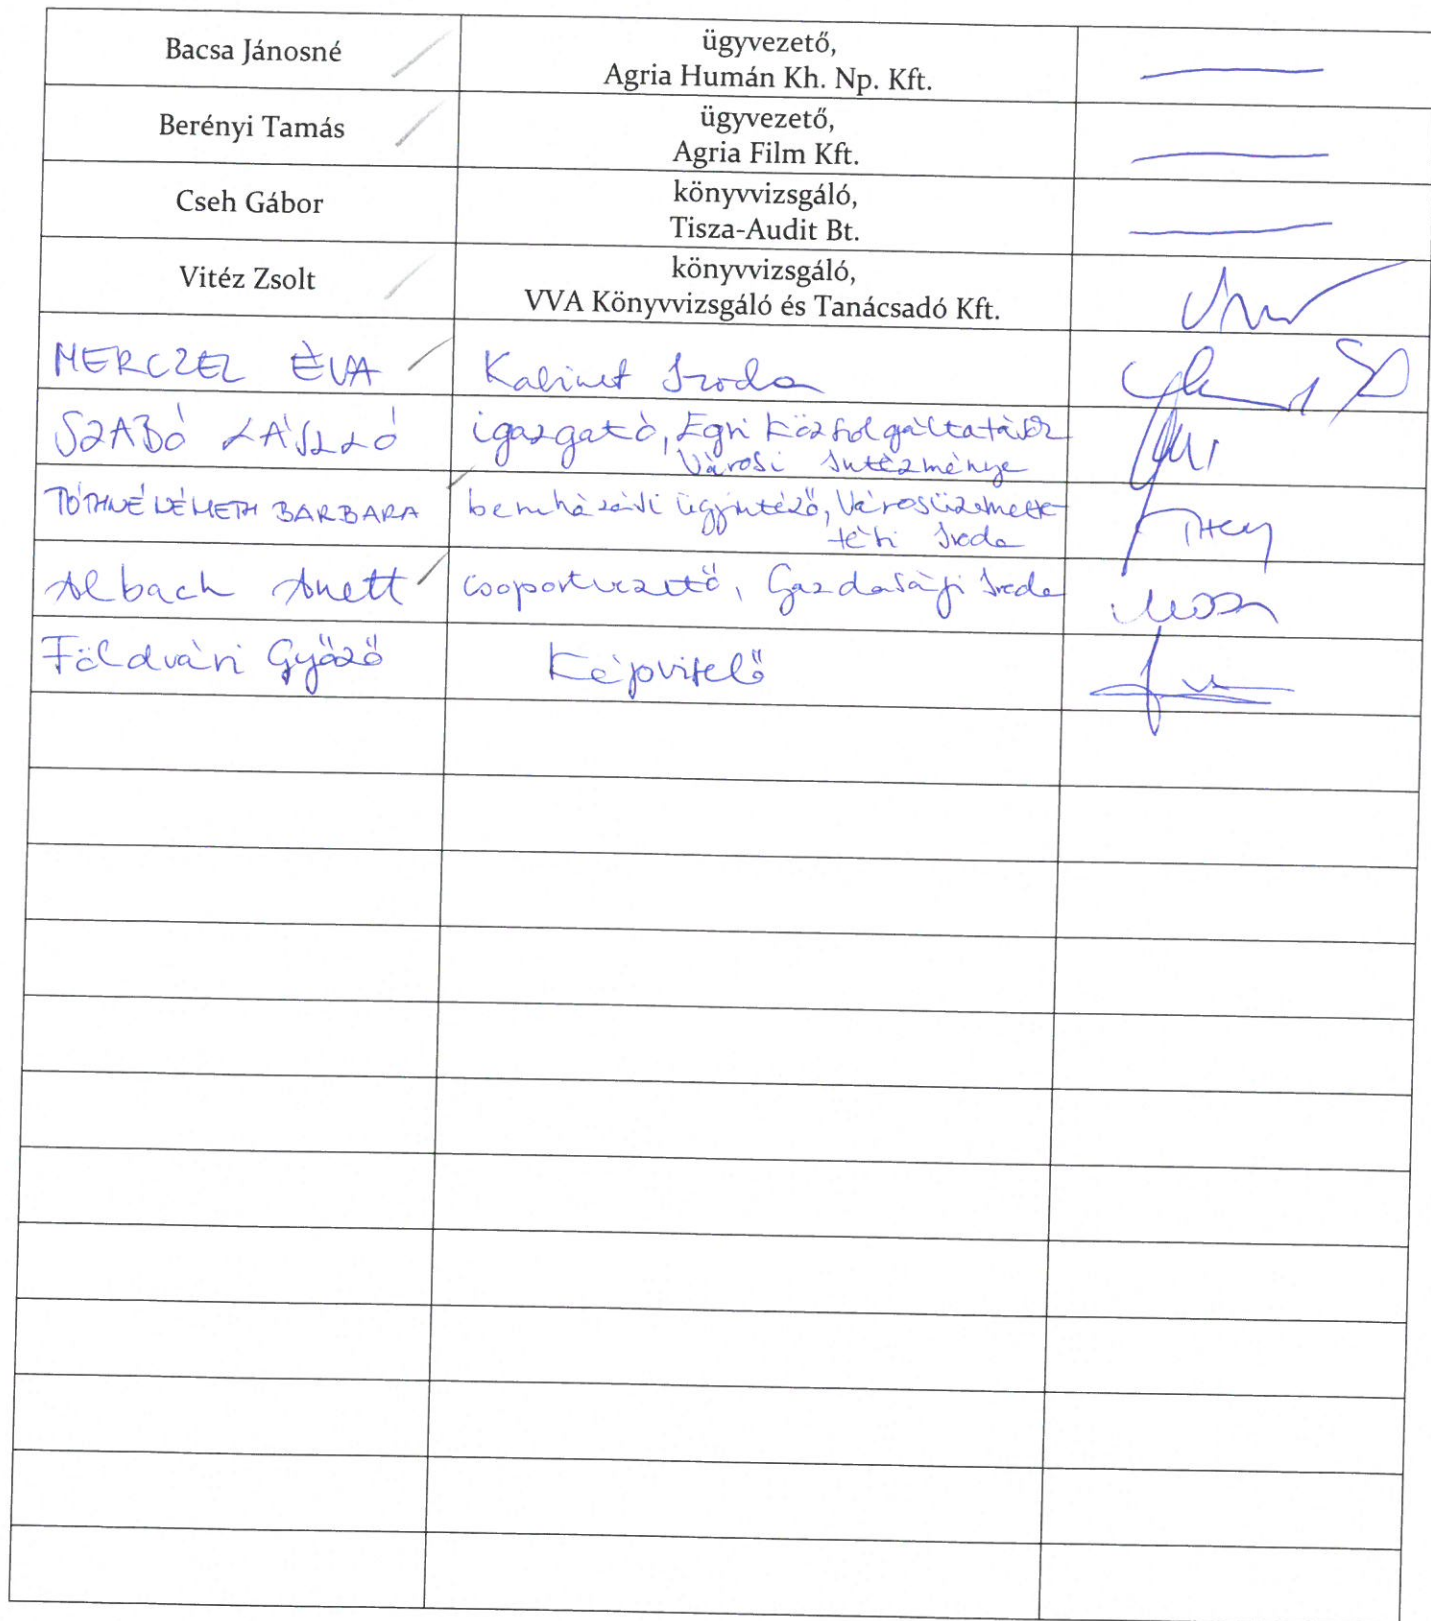 Bacsa Jánosné
ügyvezető,
Agria Humán Kh. Np. Kft.
Berényi Tamás
ügyvezető,
Agria Film Kft.
Cseh Gábor
könyvvizsgáló,
Tisza-Audit Bt.
Vitéz Zsolt
könyvvizsgáló,
VVA Könyvvizsgáló és Tanácsadó Kft.
MERCZEL ÉVA
Kabinet Iroda
SZABÓ LÁSZLÓ
igazgató, Egri Közszolgáltatások
Városi Intézménye
TÓTHNÉ NÉMETH BARBARA
beruházási ügyintéző, Városüzemelte-
tési Iroda
Albach Anett
csoportvezető, Gazdasági Iroda
Földvári Győző
Képviselő